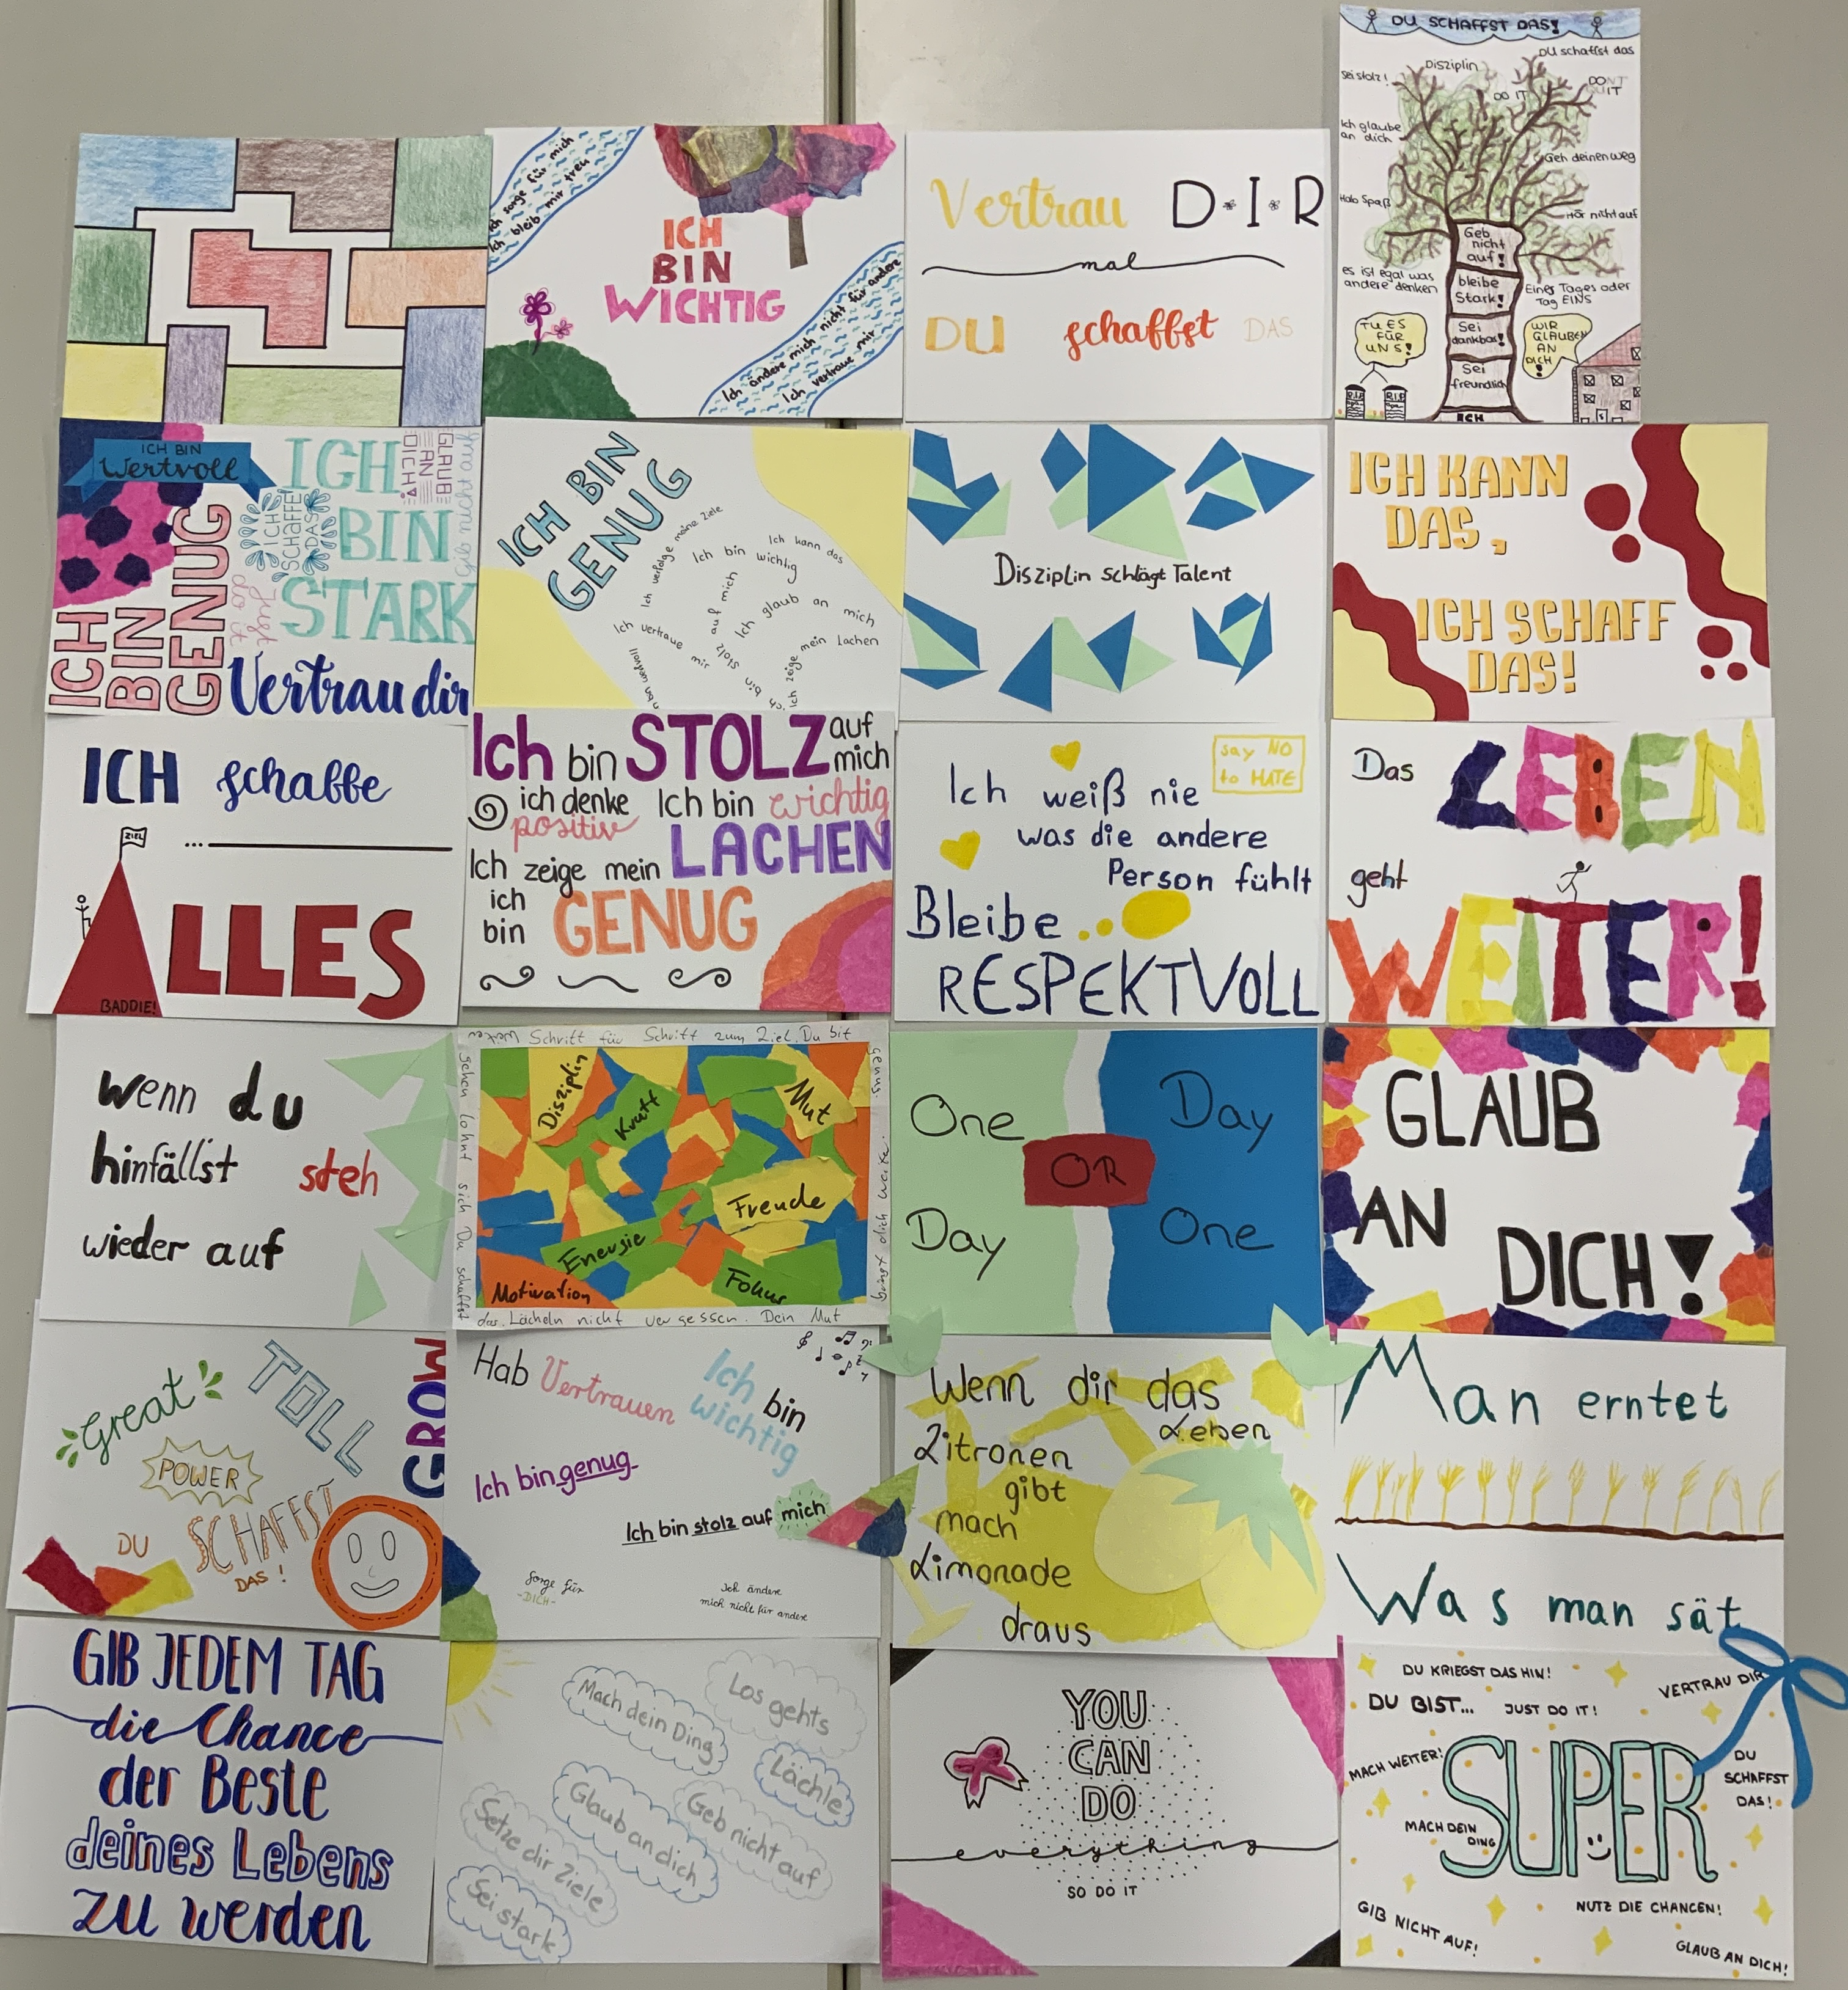 Ich sorge für mich
Ich bleib mir treu
ICH
BIN
WICHTIG
Ich ändere mich nicht für andere
Ich vertraue mir
Vertrau D·I·R
mal
DU schaffst DAS
DU SCHAFFST DAS!
DU schaffst das
Disziplin
Sei stolz!
DO IT
DON'T
QUIT
Ich glaube
an dich
Geh deinen weg
Hab Spaß
Hör nicht auf
Geb
nicht
auf!
es ist egal was
andere denken
bleibe
Stark!
Eines Tages oder
Tag EINS
TU ES
FÜR
UNS!
Sei
dankbar!
WIR
GLAUBEN
AN
DICH
!
Sei
freundlich
R.I.P
R.I.P
ICH
ICH BIN
Wertvoll
ICH
BIN
STARK
GLAUB
AN
DICH!
Gib nicht auf
ICH
SCHAFFE
DAS
Just
do it
ICH
BIN
GENUG
Vertrau dir
ICH BIN
GENUG
Ich verfolge meine Ziele
Ich kann das
Ich bin wichtig
Ich glaub an mich
Ich bin stolz auf mich
Ich vertraue mir
Ich zeige mein Lachen
Disziplin schlägt Talent
ICH KANN
DAS,
ICH SCHAFF
DAS!
ICH schaffe
... 
ZIEL
ALLES
BADDIE!
Ich bin STOLZ auf
mich
ich denke Ich bin wichtig
positiv
Ich zeige mein LACHEN
ich
bin GENUG
say NO
to HATE
Ich weiß nie
was die andere
Person fühlt
Bleibe
RESPEKTVOLL
Das LEBEN
geht
WEITER!
wenn du
hinfällst steh
wieder auf
Schritt für Schritt zum Ziel. Du bit
genug
bringt dich weiter.
das. Lächeln nicht vergessen. Dein Mut
gehen lohnt sich Du schaffst
Weiter
Disziplin
Kraft
Mut
Freude
Energie
Motivation
Fokus
One
Day
OR
Day
One
GLAUB
AN
DICH!
Great
TOLL
GROW
POWER
DU
SCHAFFST
DAS!
Hab Vertrauen
Ich
bin
wichtig
Ich bin genug
Ich bin stolz auf mich
Sorge für
-DICH-
Ich ändere
mich nicht für andere
Wenn dir das
Leben
Zitronen
gibt
mach
Limonade
draus
Man erntet
Was man sät
GIB JEDEM TAG
die Chance
der Beste
deines Lebens
zu werden
Los gehts
Mach dein Ding
Lächle
Glaub an dich
Geb nicht auf
Setze dir Ziele
Sei stark
YOU
CAN
DO
everything
SO DO IT
DU KRIEGST DAS HIN!
VERTRAU DIR
DU BIST...
JUST DO IT!
MACH WEITER!
SUPER
DU
SCHAFFST
DAS!
MACH DEIN
DING
NUTZ DIE CHANCEN!
GIB NICHT AUF!
GLAUB AN DICH!